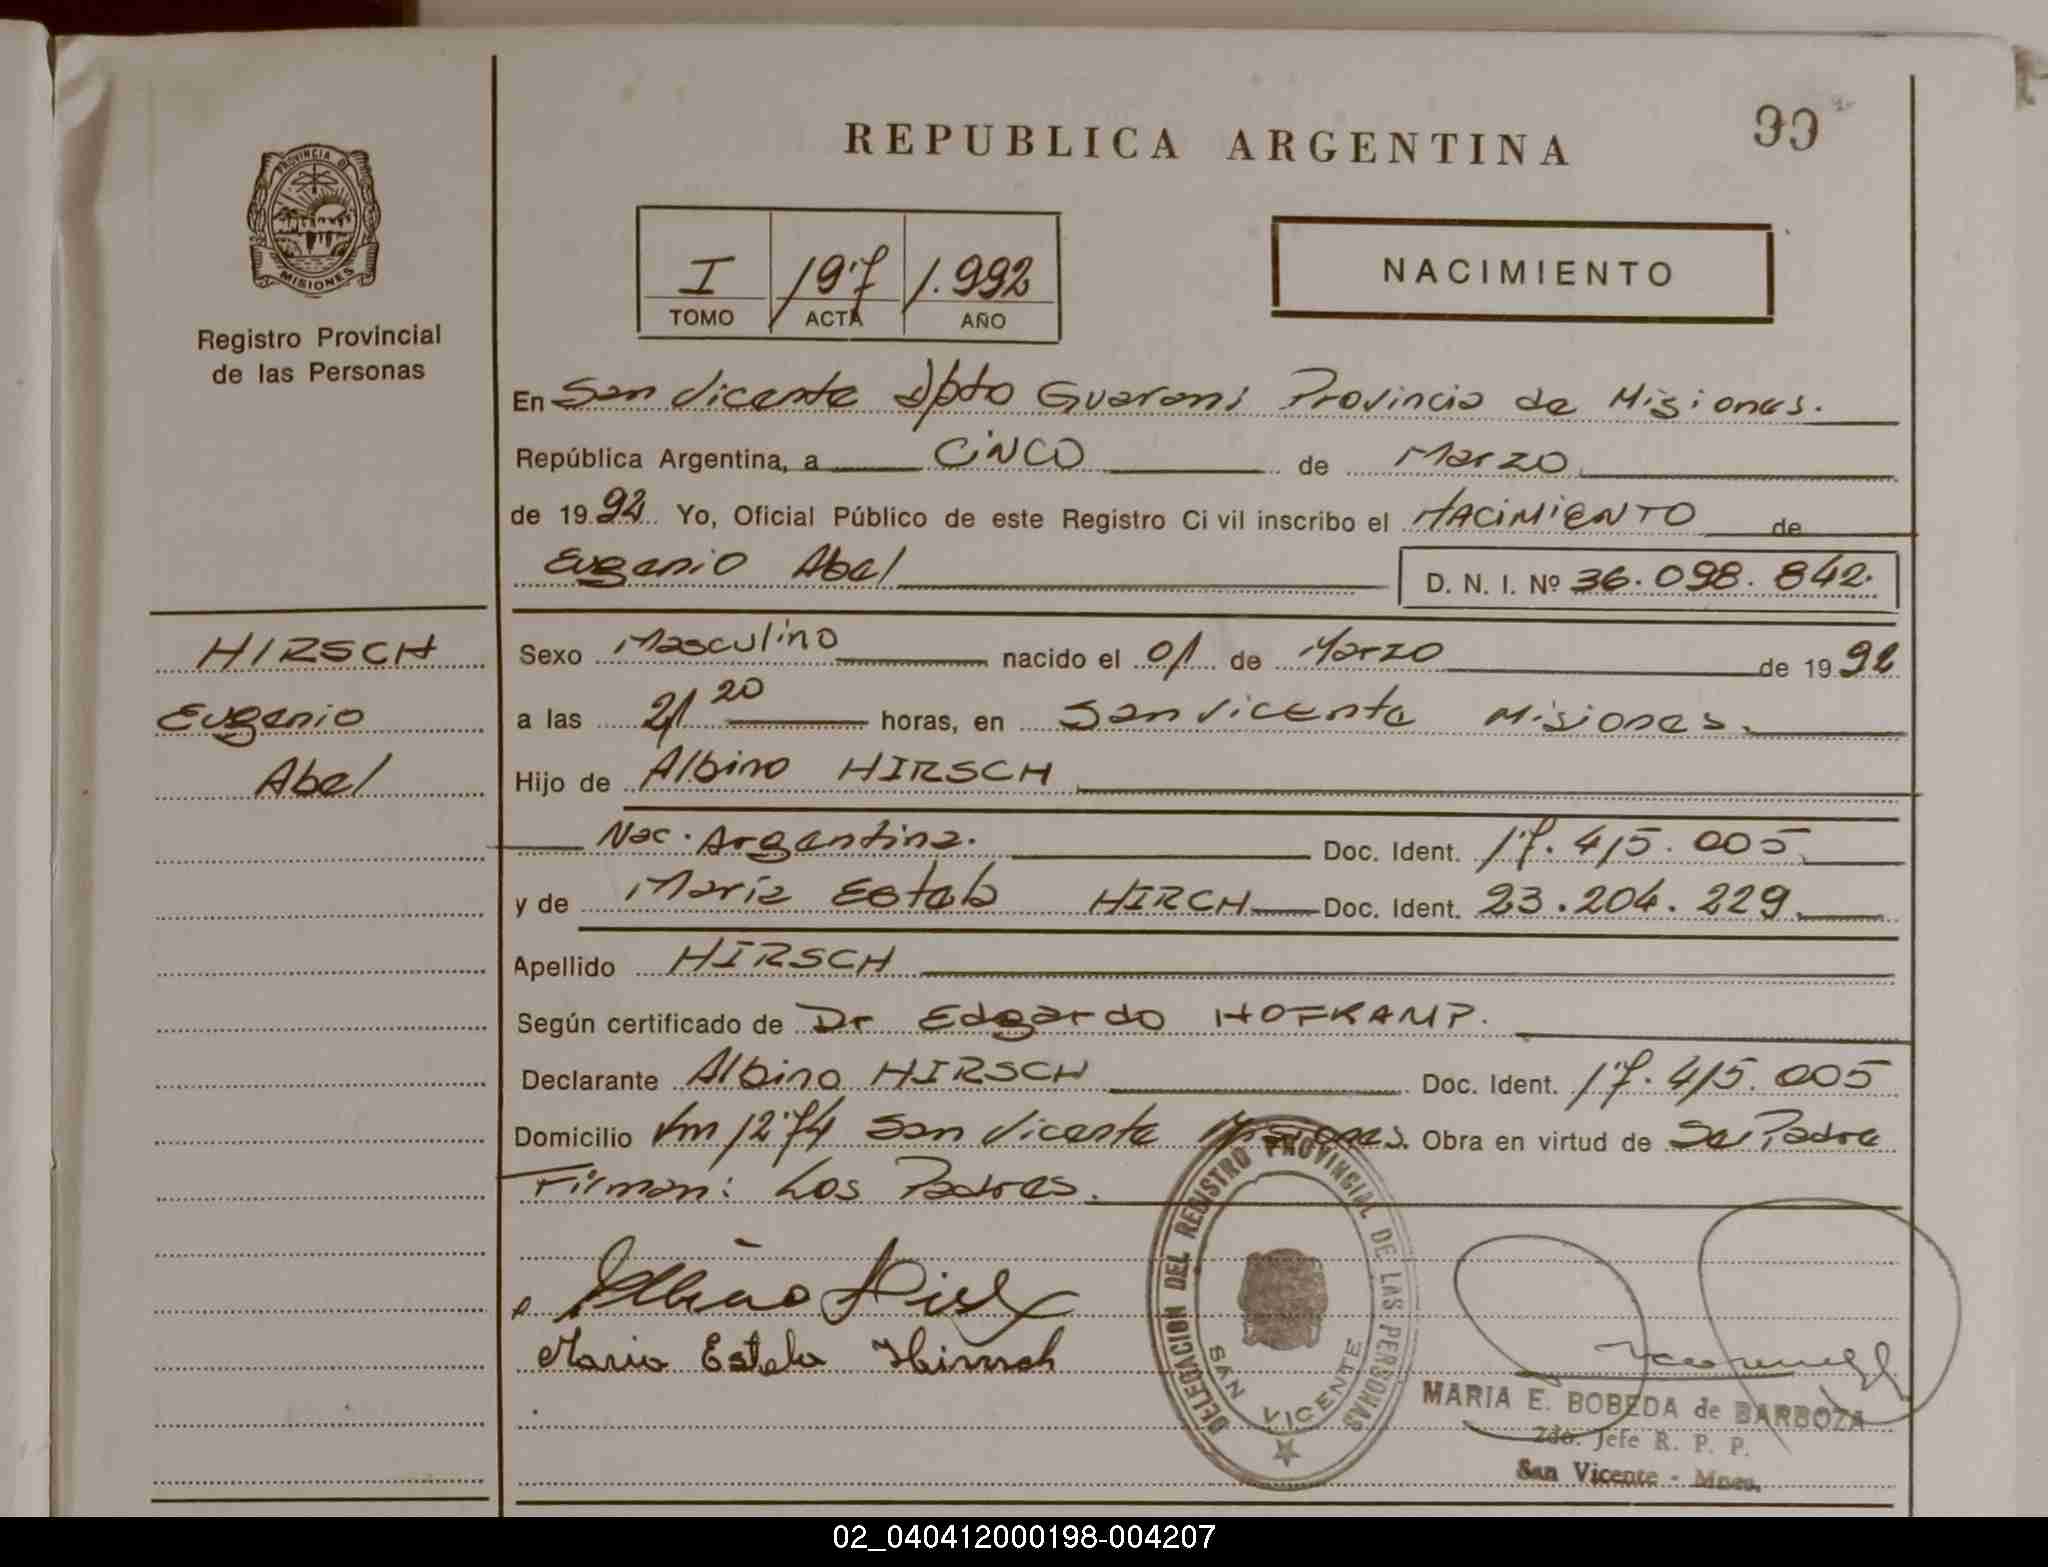 REPUBLICA ARGENTINA
99
PROVINCIA DE MISIONES
Registro Provincial
de las Personas
I 197 1.992
TOMO ACTA AÑO
NACIMIENTO
En San Vicente Dpto Guarani Provincia de Misiones.
República Argentina, a CINCO de Marzo
de 1992 Yo, Oficial Público de este Registro Civil inscribo el NACIMIENTO de
Eugenio Abel D. N. I. Nº 36.098.842.
HIRSCH
Eugenio
Abel
Sexo Masculino nacido el 01 de Marzo de 1992
a las 21 20 horas, en San Vicente Misiones.
Hijo de Albino HIRSCH
Nac. Argentina. Doc. Ident. 17.415.005
y de María Estela HIRCH Doc. Ident. 23.204.229
Apellido HIRSCH
Según certificado de Dr Edgardo HOFKAMP.
Declarante Albino HIRSCH Doc. Ident. 17.415.005
Domicilio km 1274 San Vicente Misiones. Obra en virtud de Ser Padre
Firman: Los Padres.
Albino
Maria Estela Hirsch
DELEGACION DEL REGISTRO PROVINCIAL DE LAS PERSONAS
SAN VICENTE
MARIA E. BOBEDA de BARBOZA
2do. Jefe R. P. P.
San Vicente - Mnes.
02_040412000198-004207